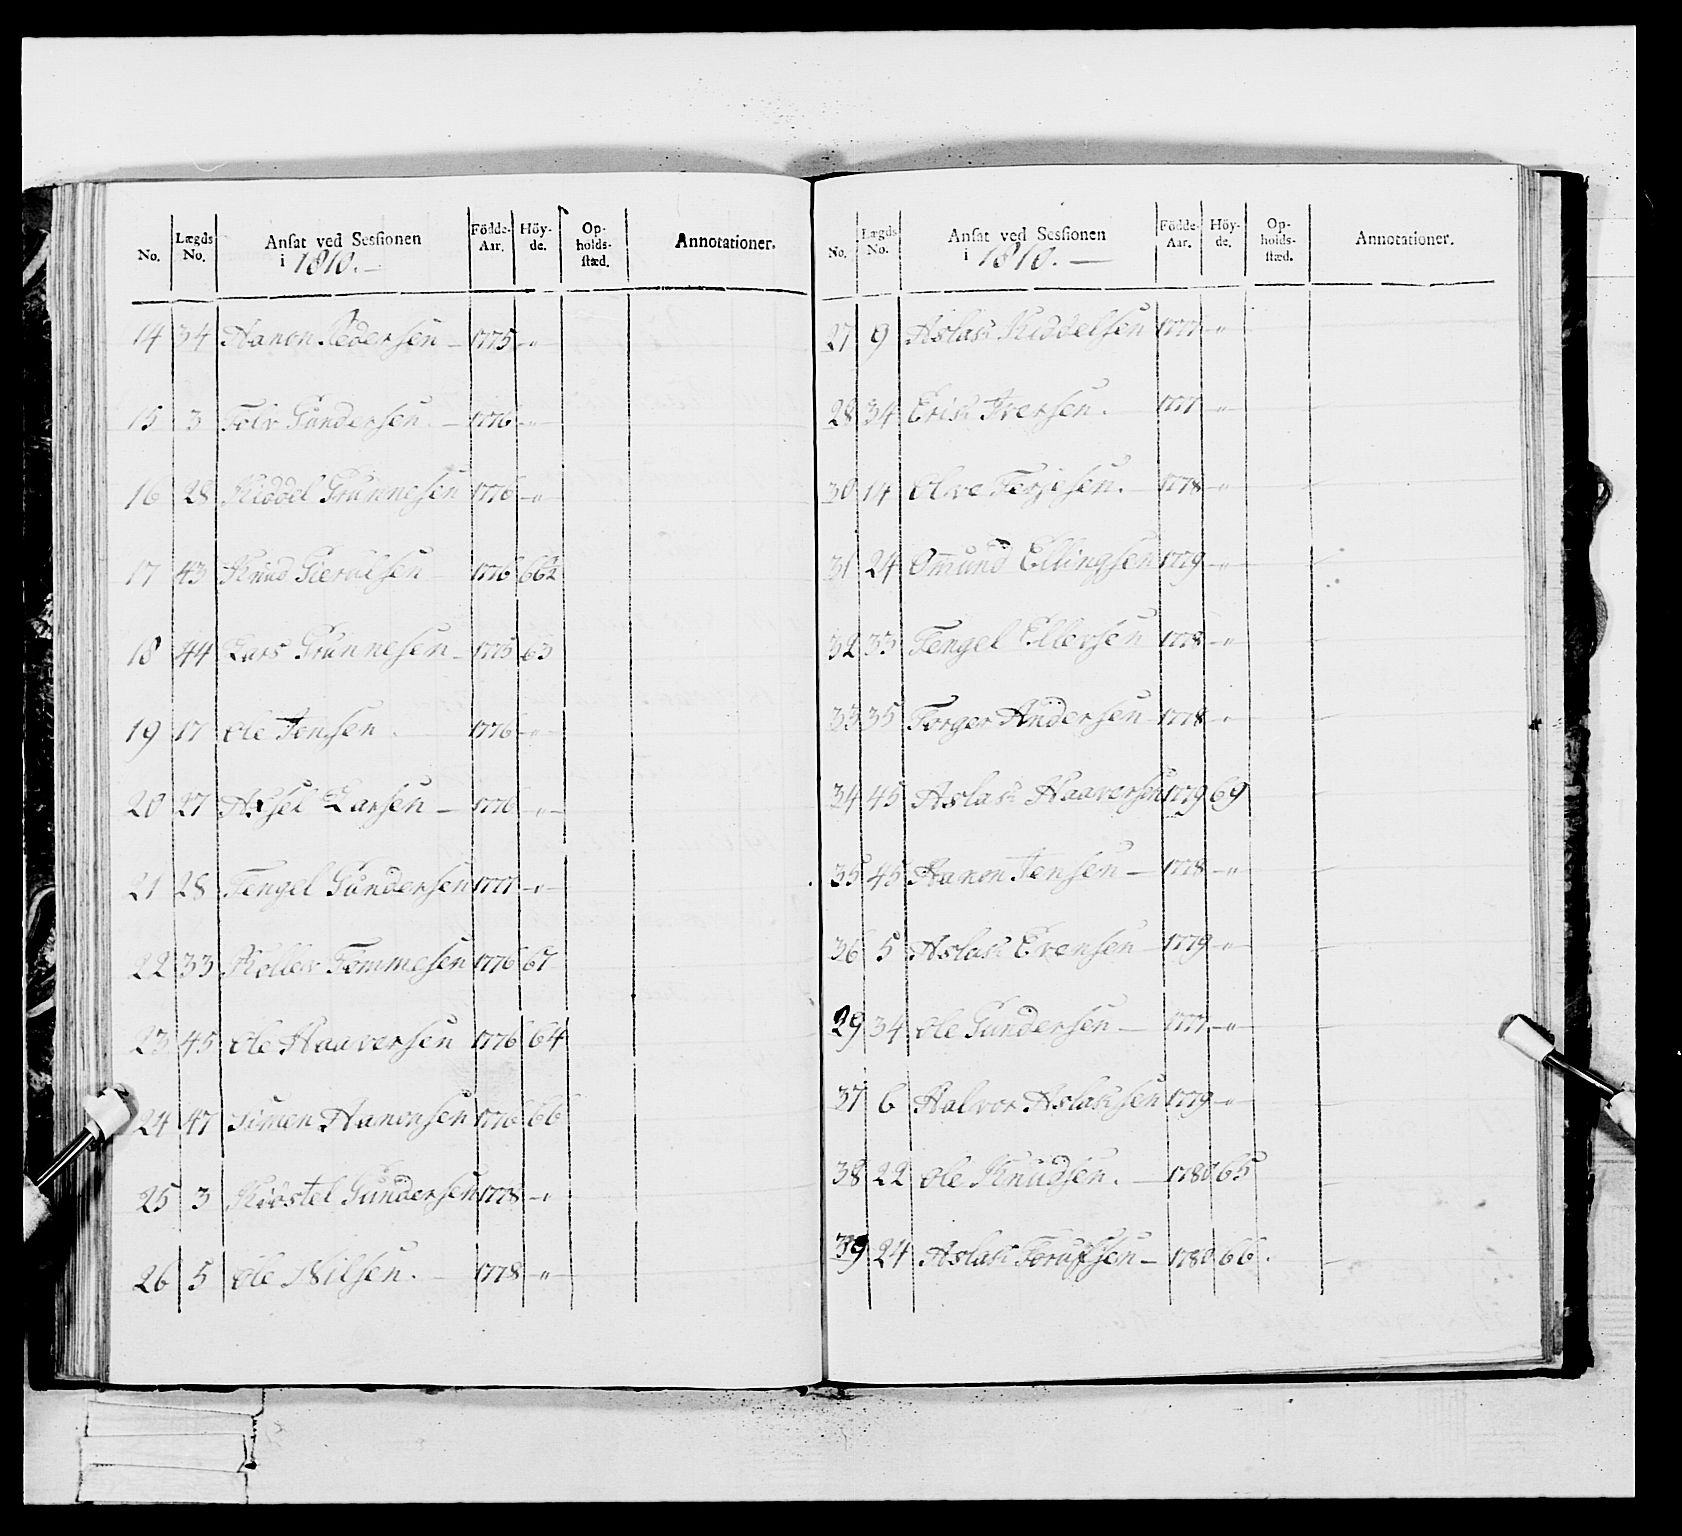 No. Lægds No. Ansat ved Sessionen i 1810. Födde-Aar. Höy-de. Op-holds-stæd. Annotationer.
14 34 Hanon Pedersen 1775 "
15 3 Tolv Gundersen 1776 "
16 28 Keddel Grunnesen 1776 "
17 43 Knud 1776 66½
18 44 Lars Grunnesen 1775 63
19 17 Ole Jensen 1776 "
20 27 Axsel Larsen 1776 "
21 28 Tengel Gundersen 1777 "
22 33 Koller Tommesen 1776 67
23 45 Ole Haaversen 1776 64
24 47 Simen Hanonsen 1776 66
25 3 Kiøstel Gundersen 1778 "
26 5 Ole Nilsen. 1778 "
No. Lægds No. Ansat ved Sessionen i 1810. Födde-Aar. Höy-de. Op-holds-stæd. Annotationer.
27 9 Aslak Keddelsen 1777 "
28 34 Erik Iversen. 1777 "
30 14 Olve Terjesen. 1778 "
31 24 Omund Ellingsen 1779 "
32 33 Tengel Ellersen 1778 "
33 35 Torger Andersen 1778 "
34 45 Aslak Haaversen 1779 69
35 45 Hanon Jensen 1778 "
36 5 Aslak Evensen 1779 "
29 34 Ole Gundersen 1777 "
37 6 Halvor Aslaksen 1779 "
38 22 Ole Knudsen. 1780 65
39 24 Aslak 1780 66.